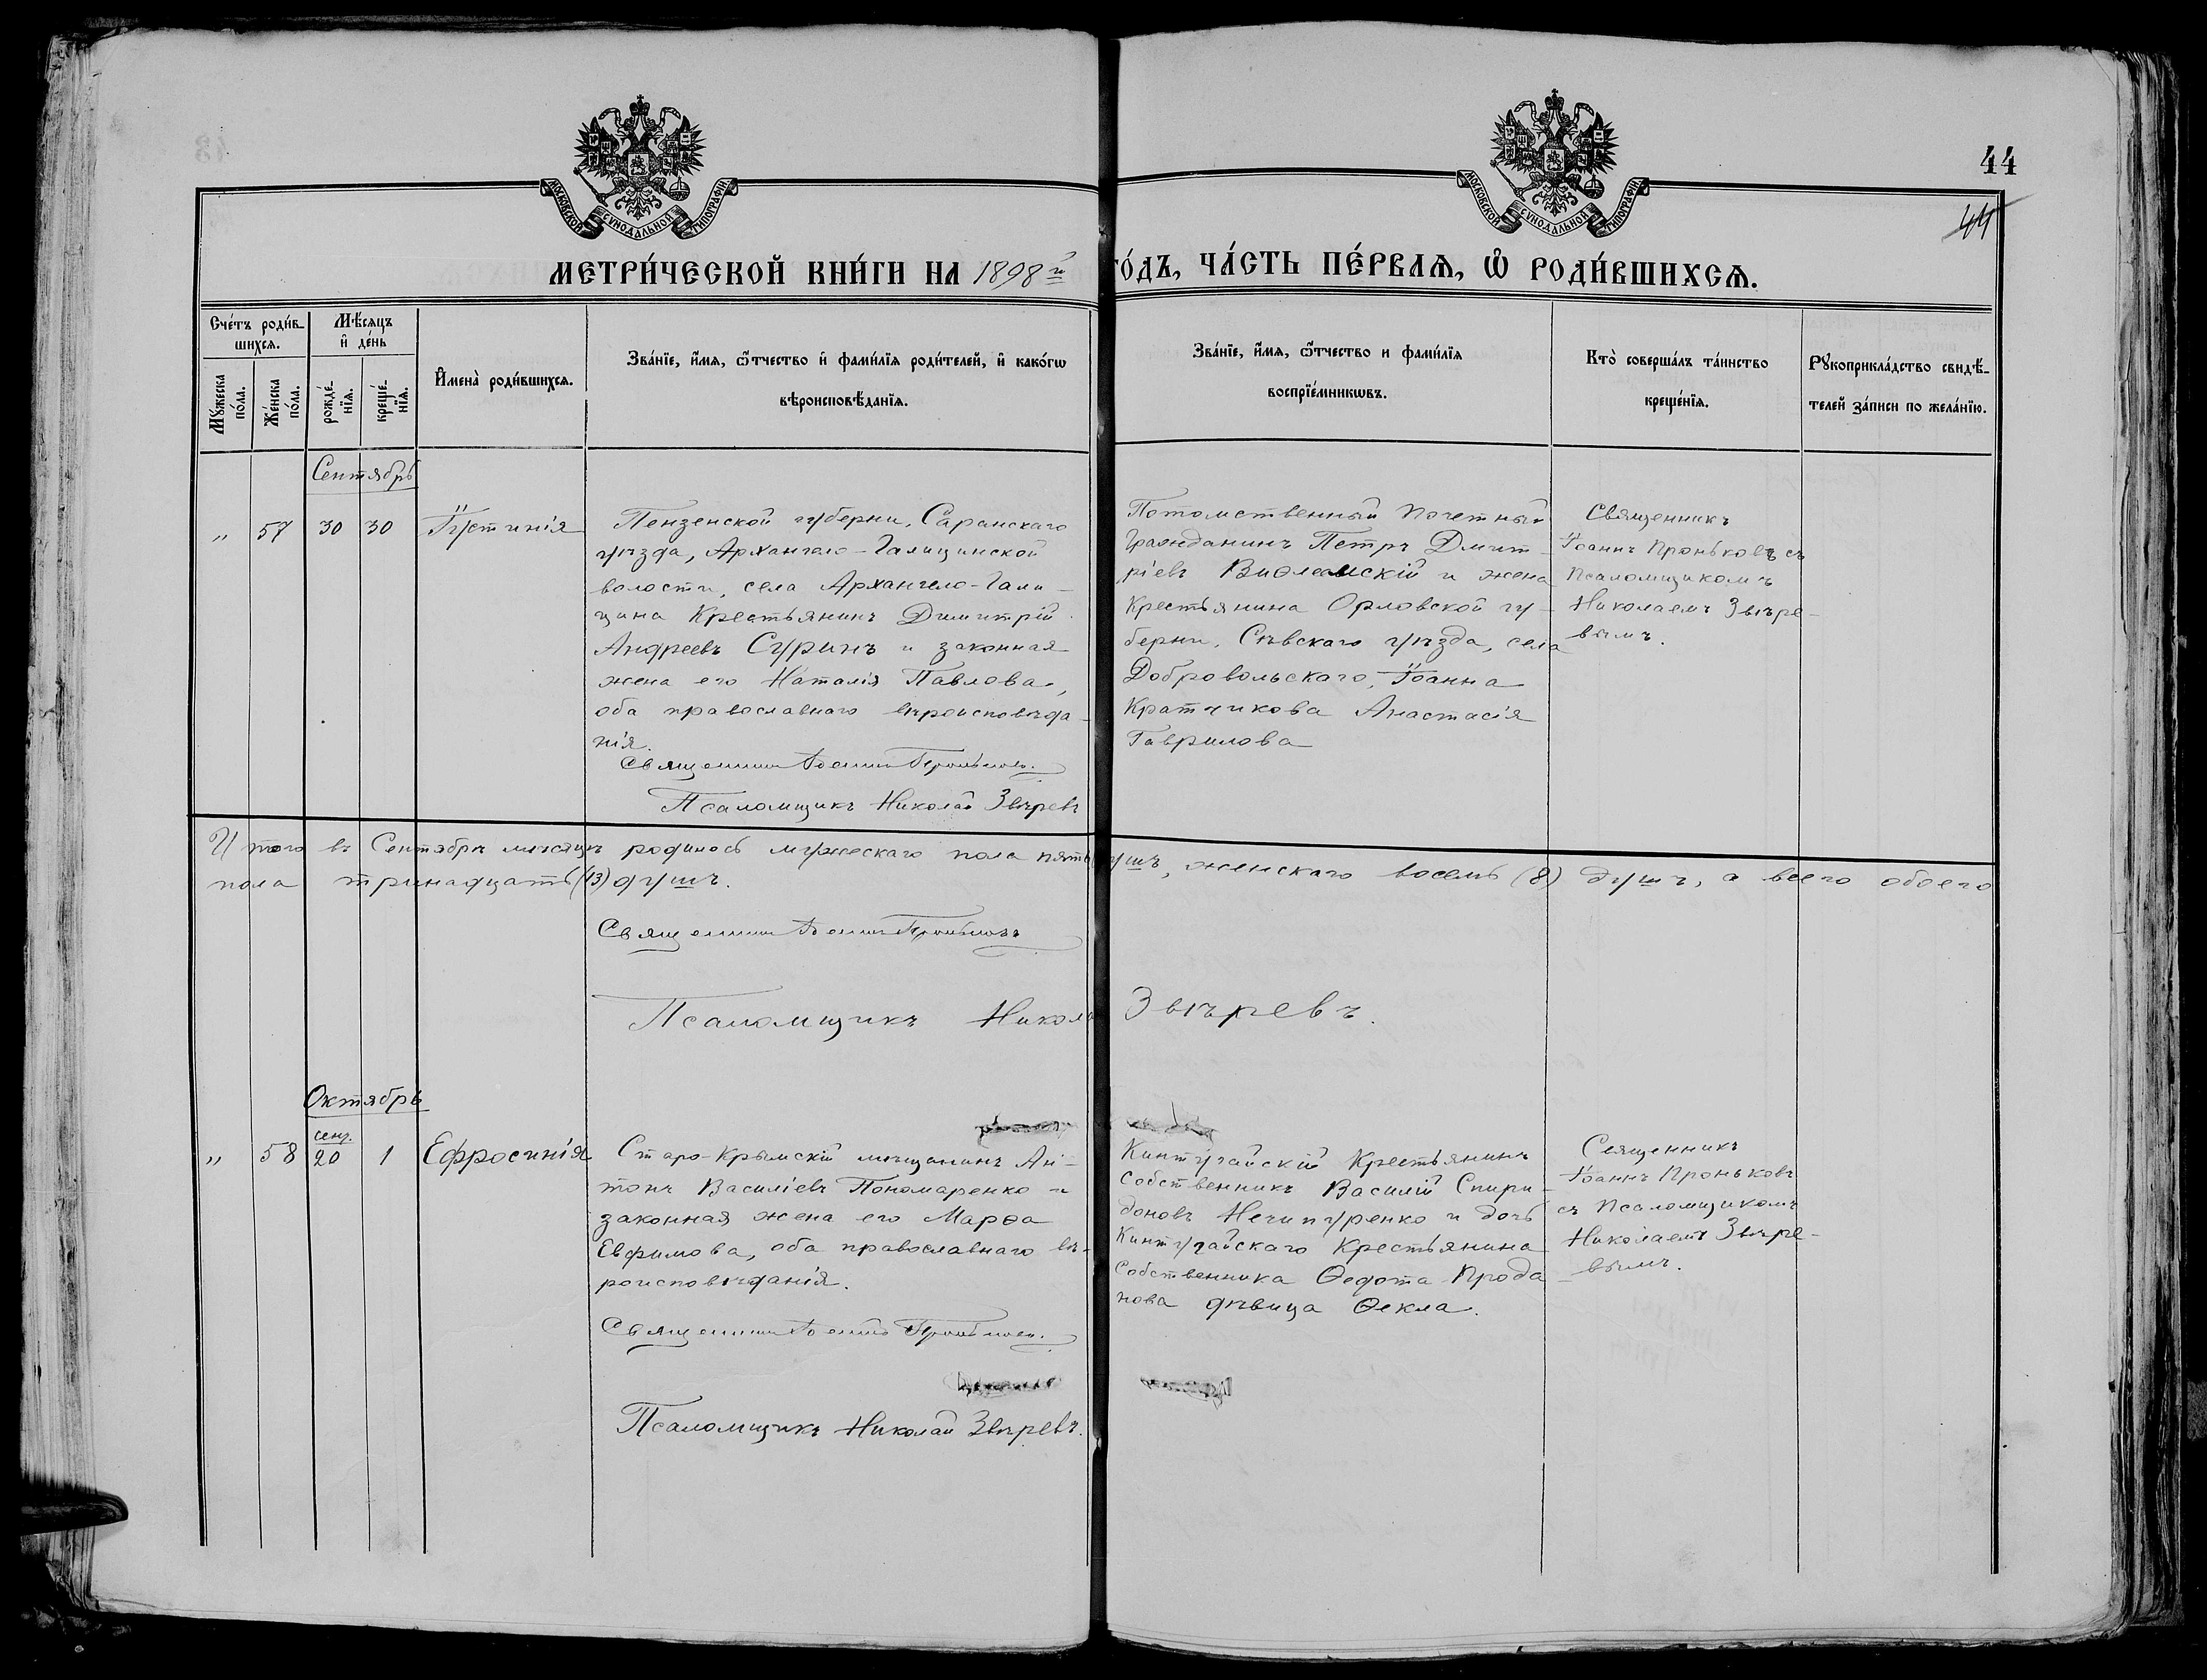 МОСКОВСКОЙ СѴНОДАЛЬНОЙ ТИПОГРАФІИ
МОСКОВСКОЙ СѴНОДАЛЬНОЙ ТИПОГРАФІИ
44
44
МЕТРИ́ЧЕСКОЙ КНИ́ГИ НА 1898й
ГО́ДЪ, ЧА́СТЬ ПЕ́РВАѦ, Ѡ҆ РОДИ́ВШИХСѦ.
Сче́тъ роди́в-
шихсѧ.
Мѣ́сѧцъ
и҆ де́нь
Мꙋ́жеска
по́ла.
Же́нска
по́ла.
рожде́-
нїѧ.
креще́-
нїѧ.
И҆мена̀ роди́вшихсѧ.
Зва́нїе, и҆́мѧ, ѻ҆́тчество и҆ фами́лїѧ роди́телей, и҆ како́гѡ
вѣроисповѣ́данїѧ.
Зва́нїе, и҆́мѧ, ѻ҆́тчество и фами́лїѧ
воспрїе́мникѡвъ.
Кто̀ соверша́лъ та́инство
креще́нїѧ.
Рꙋкоприкла́дство свидѣ́-
телей за́писи по жела́нїю.
Сентябрь
„ 57 30 30 Іустинія
Пензенской губерни, Саранскаго
уѣзда, Архангело-Галицинской
волости, села Архангело-Гали-
цина Крестьянинъ Димитрій
Андреевъ Суринъ и законная
жена его Наталія Павлова,
оба православнаго вѣроисповѣда-
нія.
Священникъ Іоаннъ Проньковъ.
Псаломщикъ Николай Звѣревъ
Потомственный Почетный
Гражданинъ Петръ Дмит-
ріевъ и жена
Крестьянина Орловской гу-
берни, Сѣвскаго уѣзда, села
Добровольскаго, Іоанна
Кратчикова Анастасія
Гаврилова
Священникъ
Іоаннъ Проньковъ съ
Псаломщикомъ
Николаемъ Звѣре-
вымъ.
Итого въ Сентябрѣ мѣсяцѣ родилось мужескаго пола пять душъ, женскаго восемь (8) душъ, а всего обоего
пола тринадцать (13) душъ.
Священникъ Іоаннъ Проньковъ
Псаломщикъ Никола Звѣревъ.
Октябрь
„ 58 сент. 20 1 Ефросинія
Старо-Крымскій мѣщанинъ Ан-
тонъ Василіевъ Пономаренко и
законная жена его Марѳа
Евфимова, оба православнаго вѣ-
роисповѣданія.
Священникъ Іоаннъ Проньковъ.
Псаломщикъ Николай Звѣревъ.
Кинтугайскій Крестьянинъ
Собственникъ Василій Спири-
доновъ Нечипуренко и дочь
Кинтугайскаго Крестьянина
Собственника Ѳедота Прода
нова дѣвица Ѳекла.
Священникъ
Іоаннъ Проньковъ
съ Псаломщикомъ
Николаемъ Звѣре-
вымъ.